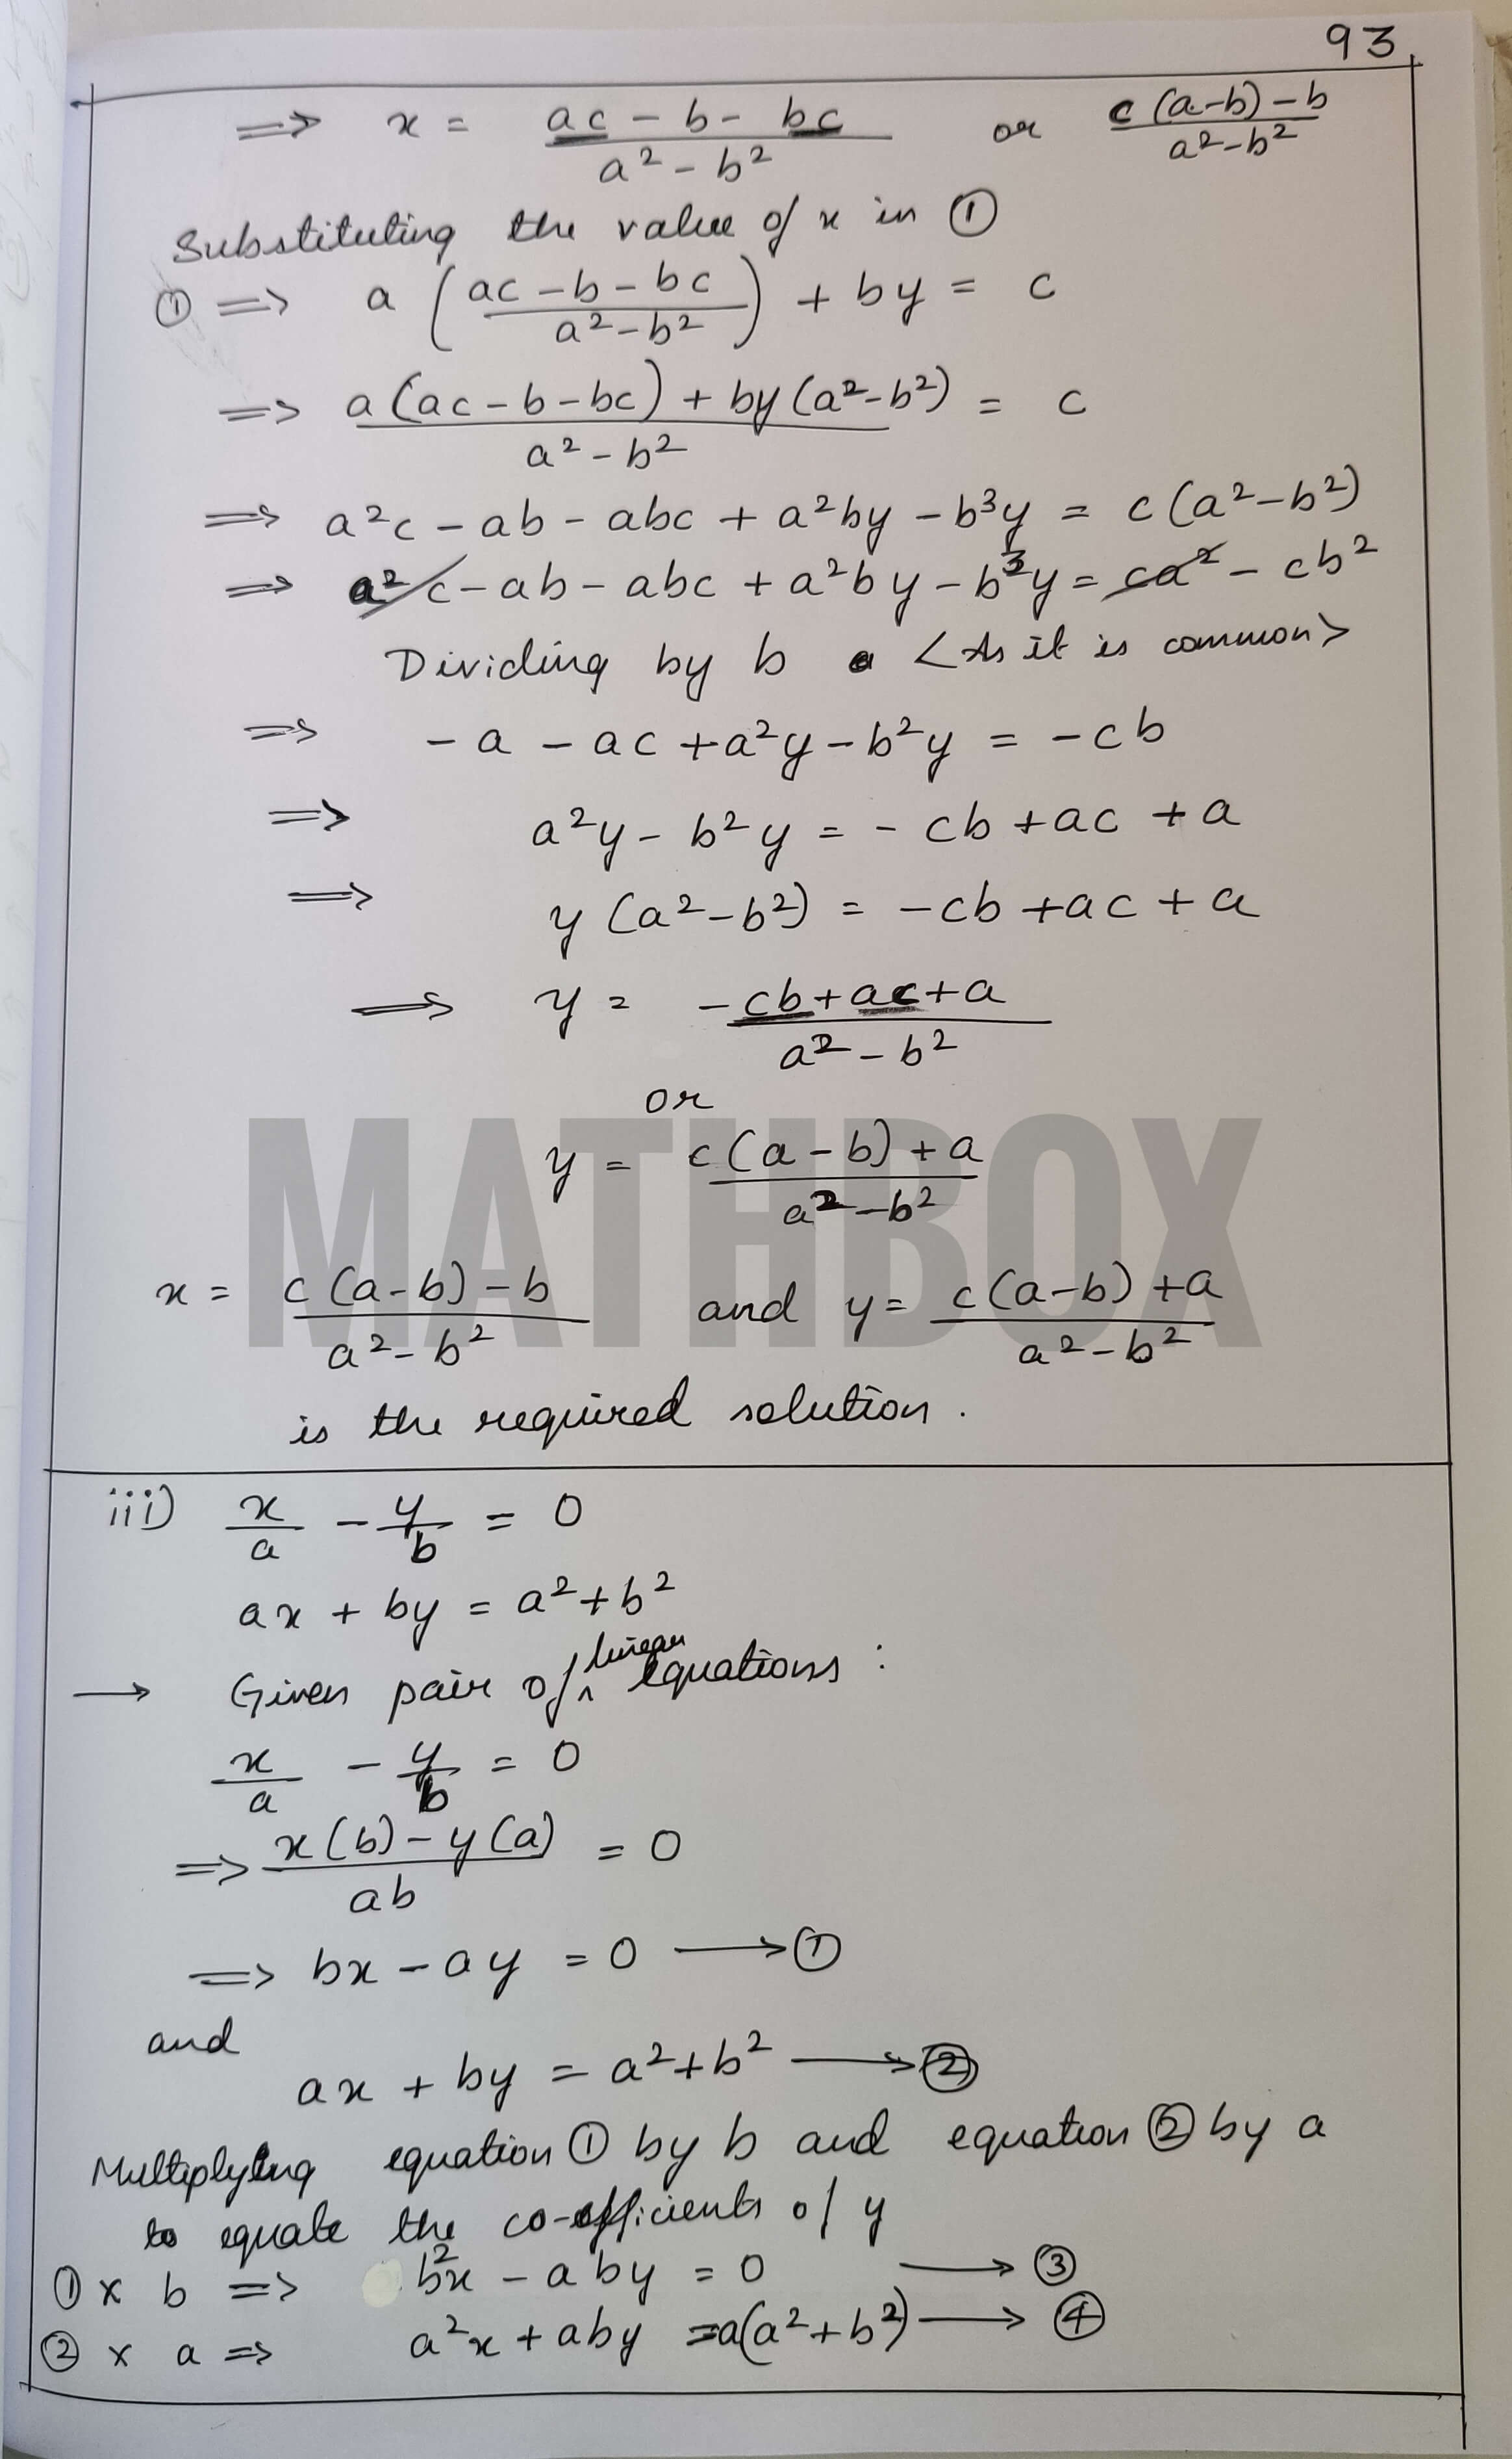 93
⇒ x = (ac - b - bc)/(a² - b²) or (c(a-b) - b)/(a² - b²)
Substituting the value of x in ①
① ⇒ a((ac - b - bc)/(a² - b²)) + by = c
⇒ (a(ac - b - bc) + by(a² - b²))/(a² - b²) = c
⇒ a²c - ab - abc + a²by - b³y = c(a² - b²)
⇒ a²c - ab - abc + a²by - b³y = ca² - cb²
Dividing by b <As it is common>
⇒ -a - ac + a²y - b²y = -cb
⇒ a²y - b²y = -cb + ac + a
⇒ y(a² - b²) = -cb + ac + a
⇒ y = (-cb + ac + a)/(a² - b²)
or
y = (c(a-b) + a)/(a² - b²)
MATHBOX
x = (c(a-b) - b)/(a² - b²) and y = (c(a-b) + a)/(a² - b²)
is the required solution.
iii) x/a - y/b = 0
ax + by = a² + b²
→ Given pair of linear equations:
x/a - y/b = 0
⇒ (x(b) - y(a))/ab = 0
⇒ bx - ay = 0 → ①
and
ax + by = a² + b² → ②
Multiplying equation ① by b and equation ② by a
to equate the co-efficients of y
① x b ⇒ b²x - aby = 0 → ③
② x a ⇒ a²x + aby = a(a² + b²) → ④